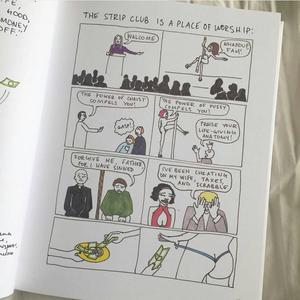 GOOD,
MONEY
OFF."
THE STRIP CLUB IS A PLACE OF WORSHIP:
WELCOME
WHADDUP
FAM!
THE POWER OF CHRIST
COMPELS YOU!
GASP!
THE POWER OF PUSSY
COMPELS YOU!
PRAISE YOUR
LIFE-GIVING
ANATOMY!
FORGIVE ME, FATHER
FOR I HAVE SINNED
I'VE BEEN CHEATING
ON MY WIFE, TAXES,
AND SCRABBLE